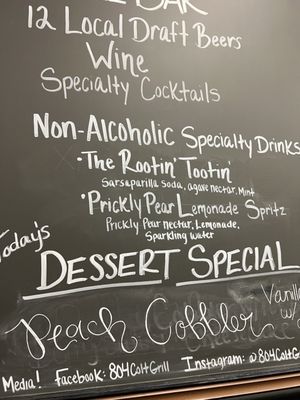 BAR
12 Local Draft Beers
Wine
Specialty Cocktails
Non-Alcoholic Specialty Drinks
•The Rootin' Tootin'
Sarsaparilla Soda, agave nectar, Mint
•Prickly Pear Lemonade Spritz
Prickly Pear nectar, Lemonade,
Sparkling water
Today's
DESSERT SPECIAL
Vanilla
Peach Cobbler w/
Media! Facebook: 804ColtGrill Instagram: @804ColtG